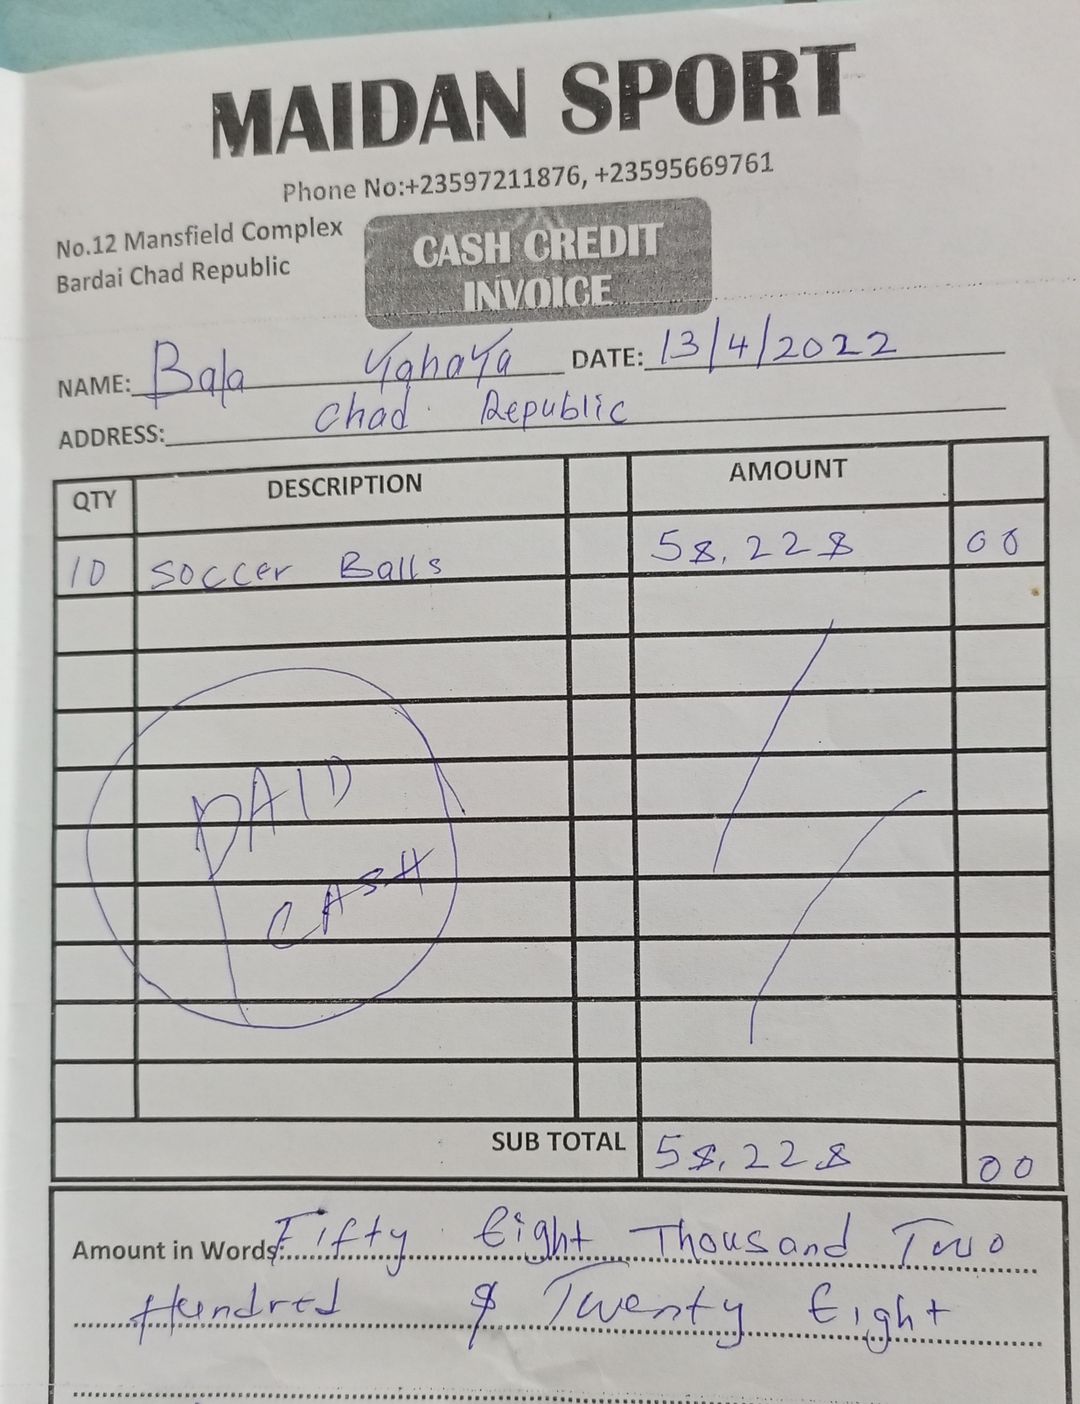 MAIDAN SPORT
Phone No:+23597211876, +23595669761
No.12 Mansfield Complex
Bardai Chad Republic
CASH CREDIT
INVOICE
NAME: Bala Yahaya DATE: 13/4/2022
ADDRESS: Chad Republic
QTY DESCRIPTION AMOUNT
10 Soccer Balls 58,228 00
PAID
CASH
SUB TOTAL 58,228 00
Amount in Words: Fifty Eight Thousand Two
Hundred $ Twenty Eight